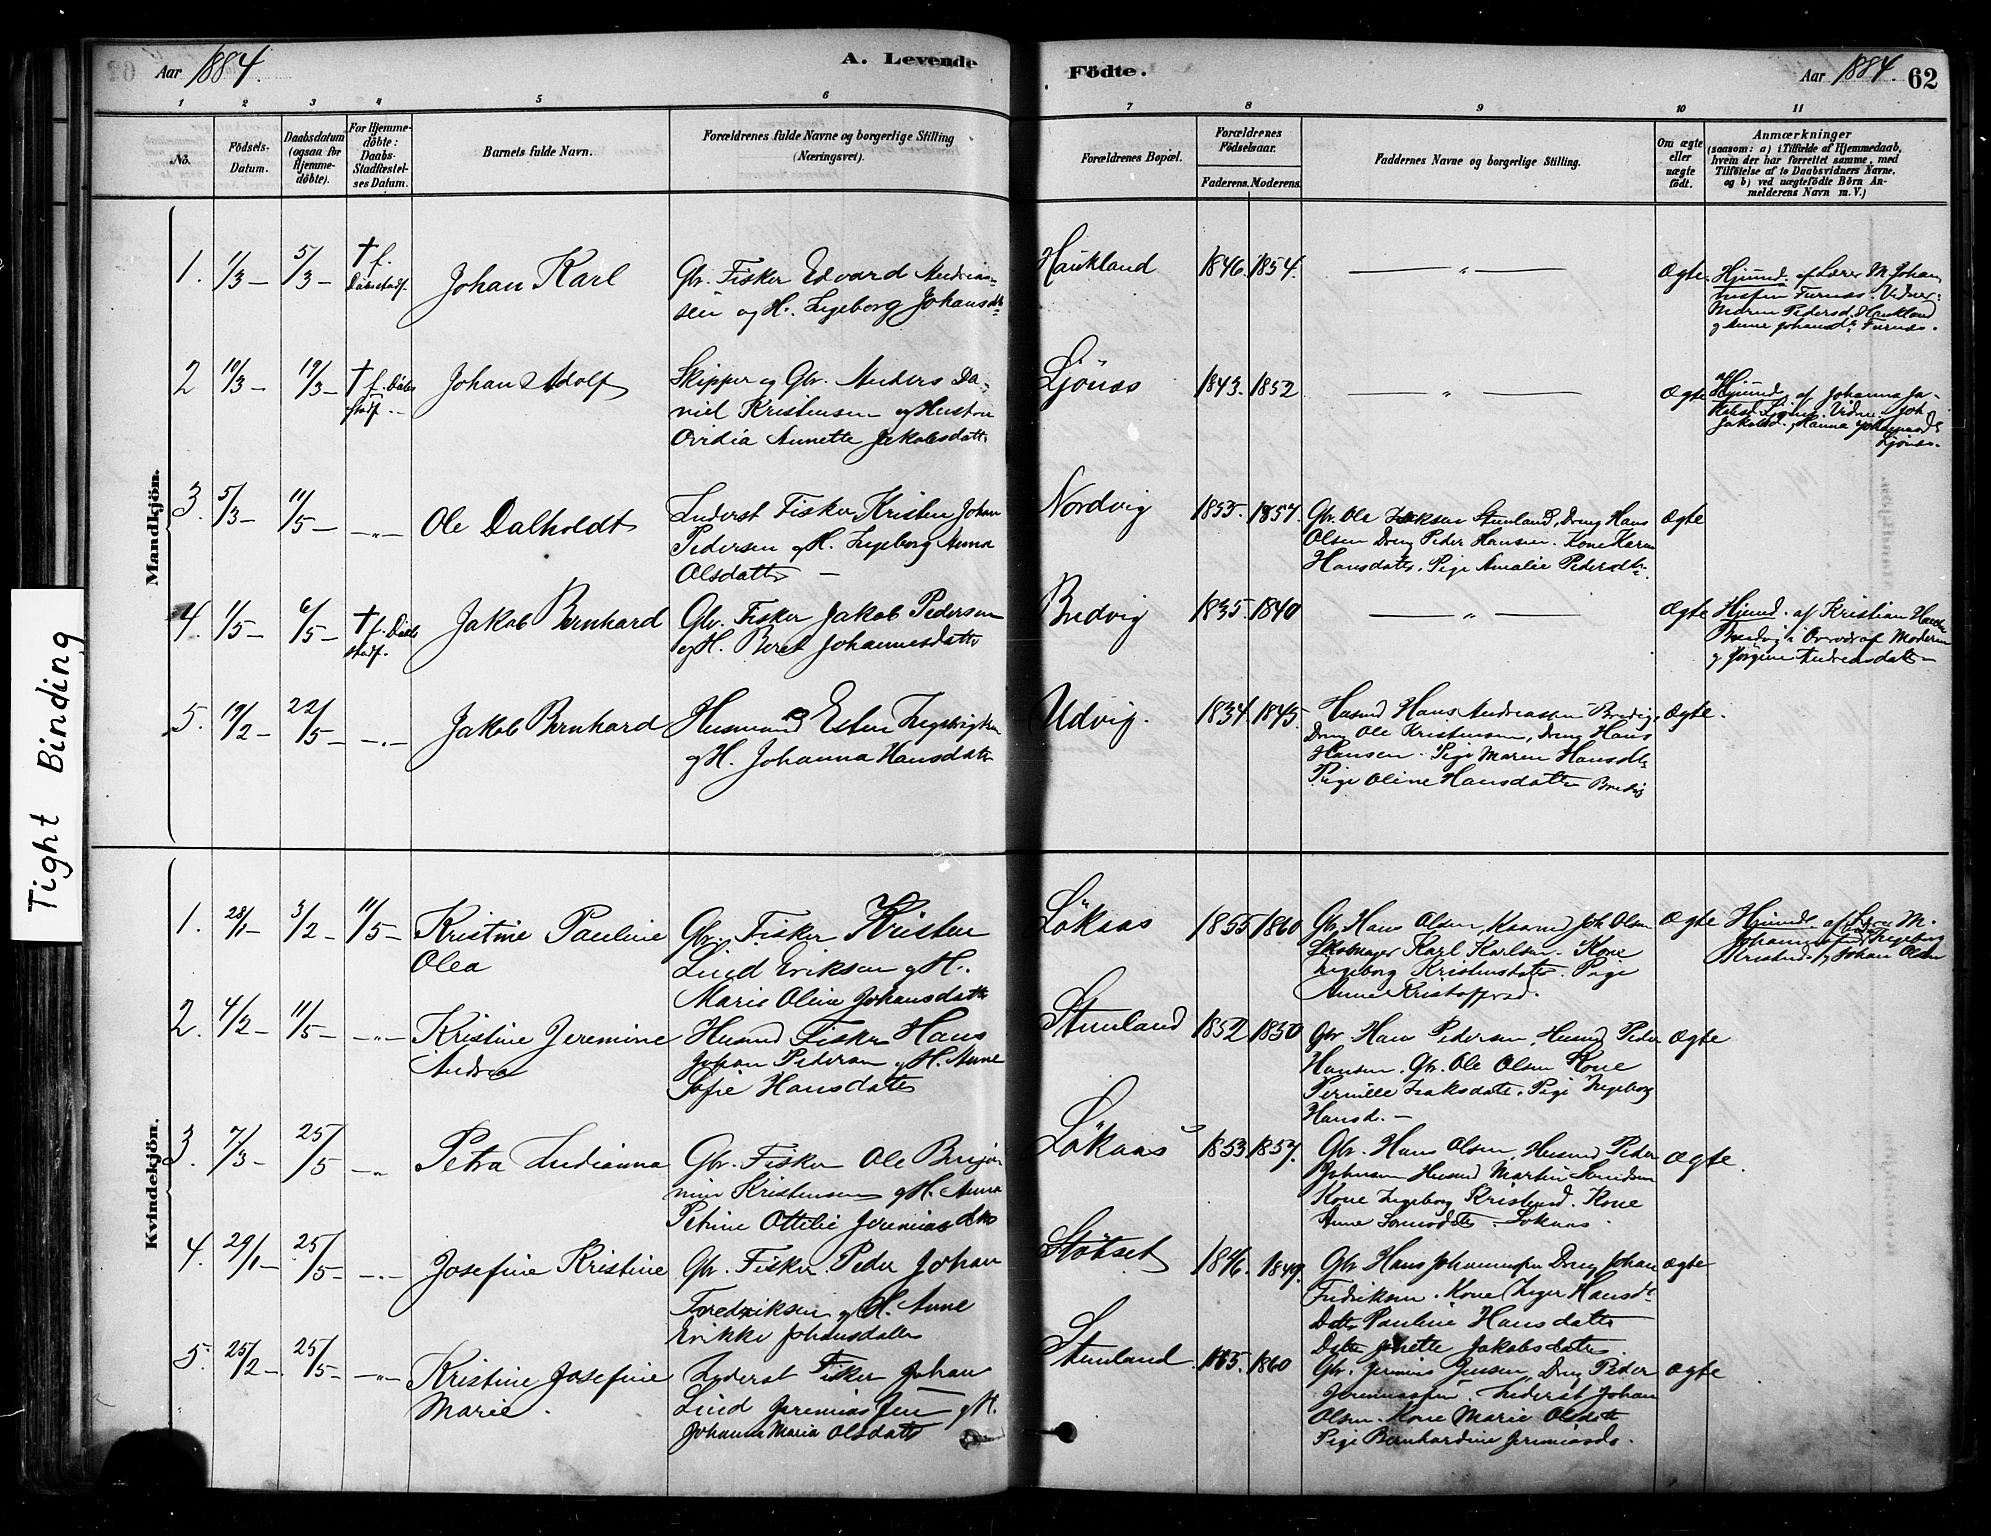 Tight Binding
Aar 1884.
A. Levende
Födte.
Aar 1884.
62
1 2 3 4 5 6 7 8 9 10 11
No.
Födsels-
Datum.
Daabsdatum
(ogsaa for
Hjemme-
döbte).
For Hjemme-
döbte:
Daabs-
Stadfæstel-
ses Datum.
Barnets fulde Navn.
Forældrenes fulde Navne og borgerlige Stilling
(Næringsvei).
Forældrenes Bopæl.
Forældrenes
Födselsaar.
Faderens. Moderens.
Faddernes Navne og borgerlige Stilling.
Om ægte
eller
uægte
födt.
Anmærkninger
(saasom: a) i Tilfælde af Hjemmedaab,
hvem der har forrettet samme, med
Tilföielse af to Daabsvidners Navne,
og b) ved uægtefödte Börn An-
melderens Navn m. V.)
Mandkjön.
1. 1/3 – 5/3 – † f. Daabstadf.
Johan Karl
Gbr. Fisker Edvard Andreas-
sen og H. Ingeborg Johansdt.
Haukland 1846. 1854. — „ — Ægte
Hjemd. af Lærer M. Johan
nesen Furnæs. Vidner:
Maren Pedersd. Haukland
g Anne Johansdt. Furnæs.
2 10/3 – 19/3 – † f. Daabs
stadf. –
Johan Adolf
Skipper og Gbr. Anders Da-
niel Kristensen og Hustru
Ovidia Annette Jakobsdatter
Ljönæs 1843. 1852 — „ — Ægte
Hjemd. af Johanna Ja-
Ljönæs.
3. 5/3 – 11/5 – – „ –
Ole Dalholdt
Inderst Fisker Kristen Johan
Pedersen g H. Ingeborg Anna
Olsdatter –
Nordvig 1853. 1857.
Gbr. Ole Isaksen Stenland, Dreng Hans
Olsen Dreng Peder Hansen. Kone Karen
Hansdatter. Pige Amalie Pedersdt.
Ægte
4. 1/5 – 6/5 – † f. Daabs
stadf.
Jakob Bernhard
Gbr. Fisker Jakob Pedersen
g H. Beret Johannesdatter
Bredvig 1835. 1840 — „ — Ægte
Hjemd. af Kristian Hansen
Bredvig i Overvær af Moderen
g Jörgine Andreasdatter
5. 19/2 – 22/5 – – „ –
Jakob Bernhard
Husmand Esten Ingebrigtsen
g H. Johanna Hansdatter
Udvig. 1834. 1845.
Husmd Hans Andreassen Bredvig,
Dreng Ole Kristensen, Dreng Hans
Hansen. Pige Maren Hansdt.
Pige Oline Hansdatter Bredvig
Ægte.
Kvindekjön.
1. 28/1 – 3/2 – 11/5 –
Kristine Pauline
Olea
Gbr. Fisker Kristen
Lind Eriksen g H.
Marie Oline Johansdatter
Lökaas 1855 1860
Gbr. Hans Olsen, Kaarmd Joh. Olsen
Skomager Karl Karlsen. Kone
Ingeborg Kristensdatter. Pige
Anne Kristoffersd.
Ægte
Hjemd. af Lærer M.
Kristensd. g Johan Olsen
2. 4/2 – 11/5 – – „ –
Kristine Jeremine
Andrea
Husmd Fisker Hans
Johan Pedersen g H. Anne
Sofie Hansdatter
Stenland 1852 1850
Gbr. Hans Pedersen, Husmd Peder
Hansen. Gbr. Ole Olsen Kone
Pernille Isaksdatter. Pige Ingeborg
Hansd. –
Ægte
3. 7/3 – 25/5 – „
Petra Indianna
Gbr. Fisker Ole Benja-
min Kristensen g H. Anna
Petrine Ottilie Jeremiasdatter
Lökaas 1853 1857.
Gbr. Hans Olsen, Husmd Peder
Johnsen Husmd Martin
Kone Ingeborg Kristensd. Kone
Anne Lökaas.
Ægte.
4. 29/1 – 25/5 – – „ –
Josefine Kristine
Gbr. Fisker Peder Johan
Fredriksen g H. Anne
Erikke Johansdatter
Stökset 1846. 1849.
Gbr. Hans Johannesen Dreng Johan
Fredriksen. Kone Inger Hansdt.
Datter Pauline Hansdatter
Datter Jonette Jakobsdatter
Ægte
5. 25/2 – 25/5 – – „ –
Kristine Josefine
Marie.
Inderst Fisker Johan
Lind Jeremiassen g H.
Johanna Maria Olsdatter
Stenland 1860
Gbr. Jeremias Jensen, Dreng Peder
Jeremiassen. Inderst Johan
Olsen. Kone Marie Olsdatter
Pige Bernhardine Jeremiasdt.
Ægte